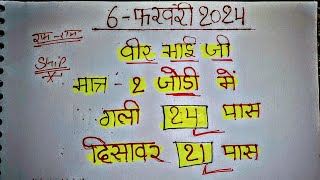 6-फरवरी 2024
राम-राम
वीर भाई जी
मात्र - 2 जोडी में
गली 24 पास
दिसावर 21 पास